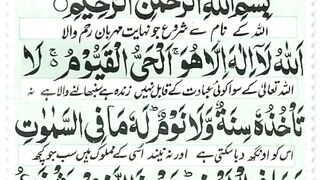 بِسْمِ اللهِ الرَّحْمٰنِ الرَّحِيْمِ
اللہ کے نام سے شروع جو نہایت مہربان رحم والا
اَللهُ لَاۤ اِلٰهَ اِلَّا هُوَۚ اَلْحَىُّ الْقَيُّوْمُ ۚ لَا
اللہ تعالیٰ کے سوا کوئی عبادت کے قابل نہیں زندہ ہے سنبھالنے والا ہے نہ
تَاْخُذُهٗ سِنَةٌ وَّلَا نَوْمٌ ؕ لَهٗ مَا فِى السَّمٰوٰتِ
اس کو اونگھ دبا سکتی ہے اور نہ نیند اسی کے مملوک ہیں سب جو کچھ